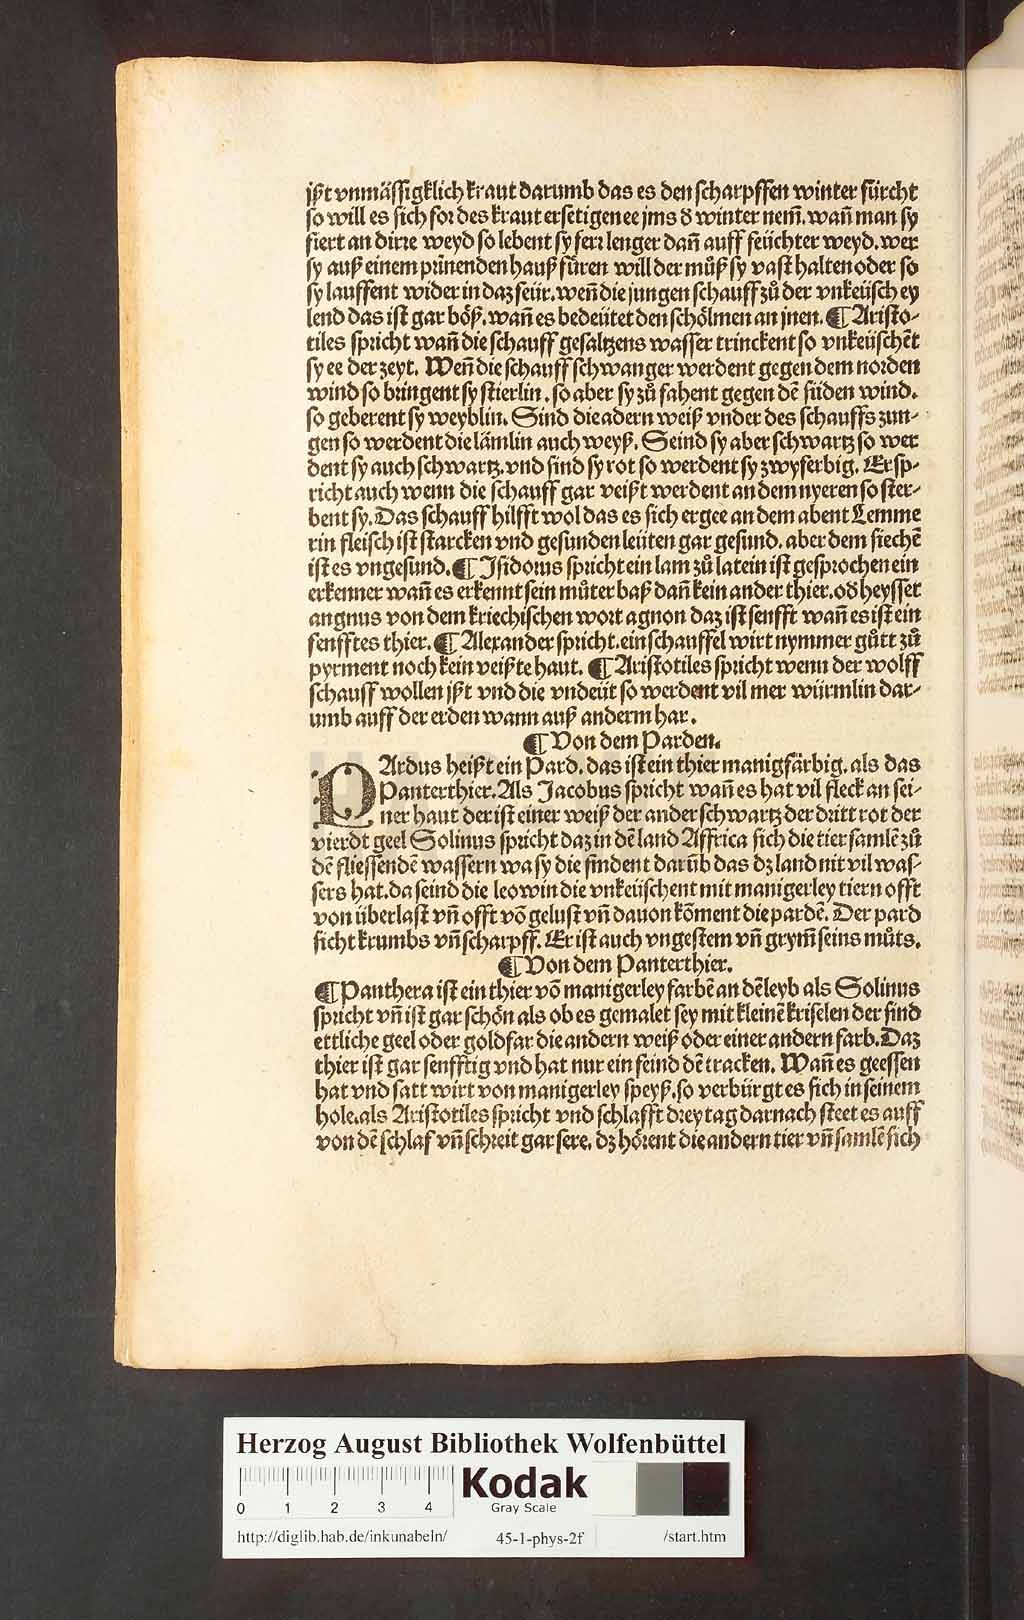 ißt vnmässigklich kraut darumb das es den scharpffen winter fürcht
so will es sich for des kraut ersetigen ee jms d̕ winter nem̄. wañ man sy
fiert an dirre weyd so lebent sy ferr lenger dañ auff feüchter weyd. wer
sy auß einem prinenden hauß fůren will der můß sy vast halten oder so
sy lauffent wider in daz feür. weñ die jungen schauff zů der vnkeüsch ey
lend das ist gar böß. wañ es bedeütet den schölmen an jnen. ¶ Aristo⸗
tiles spricht wañ die schauff gesaltzens wasser trinckent so vnkeüschēt
sy ee der zeyt. Weñ die schauff schwanger werdent gegen dem norden
wind so bringent sy stierlin. so aber sy zů fahent gegen dē süden wind.
so geberent sy weyblin. Sind die adern weiß vnder des schauffs zun⸗
gen so werdent die lämlin auch weyß. Seind sy aber schwartz so wer
dent sy auch schwartz. vnd sind sy rot so werdent sy zwyferbig. Er sp⸗
richt auch wenn die schauff gar veißt werdent an dem nyeren so ster⸗
bent sy. Das schauff hilfft wol das es sich ergee an dem abent Lemme
rin fleisch ist starcken vnd gesunden leüten gar gesund. aber dem siechē
ist es vngesund. ¶ Isidorus spricht ein lam zů latein ist gesprochen ein
erkenner wañ es erkennt sein můter baß dañ kein ander thier. od̕ heysset
angnus von dem kriechischen wort agnon daz ist senfft wañ es ist ein
senfftes thier. ¶ Alexander spricht. ein schauffel wirt nymmer gůtt zů
pyrment noch kein veißte haut. ¶ Aristotiles spricht wenn der wolff
schauff wollen ißt vnd die vndeüt so werdent vil mer würmlin dar⸗
umb auff der erden wann auß anderm har.
¶ Von dem Parden.
PArdus heißt ein Pard. das ist ein thier manigfärbig. als das
Panterthier. Als Jacobus spricht wañ es hat vil fleck an sei⸗
ner haut der ist einer weiß der ander schwartz der dritt rot der
vierdt geel Solinus spricht daz in dē land Affrica sich die tier samlē zů
dē fliessendē wassern wa sy die findent darūb das dz land nit vil was⸗
sers hat. da seind die leowin die vnkeüschent mit manigerley tiern offt
von überlast vñ offt võ gelust vñ dauon kõment die pardē. Der pard
sicht krumbs vñ scharpff. Er ist auch vngestem vñ grym̄ seins můts.
¶ Von dem Panterthier.
¶ Panthera ist ein thier võ manigerley farbē an dē leyb als Solinus
spricht vñ ist gar schön als ob es gemalet sey mit kleinē kriselen der sind
ettliche geel oder goldfar die andern weiß oder einer andern farb. Daz
thier ist gar senfftig vnd hat nur ein feind dē tracken. Wañ es geessen
hat vnd satt wirt von manigerley speyß. so verbürgt es sich in seinem
hole. als Aristotiles spricht vnd schlafft drey tag darnach steet es auff
von dē schlaf vñ schreit gar sere. dz hörent die andern tier vñ samlē sich
Herzog August Bibliothek Wolfenbüttel
0 1 2 3 4
Kodak
Gray Scale
http://diglib.hab.de/inkunabeln/ 45-1-phys-2f /start.htm